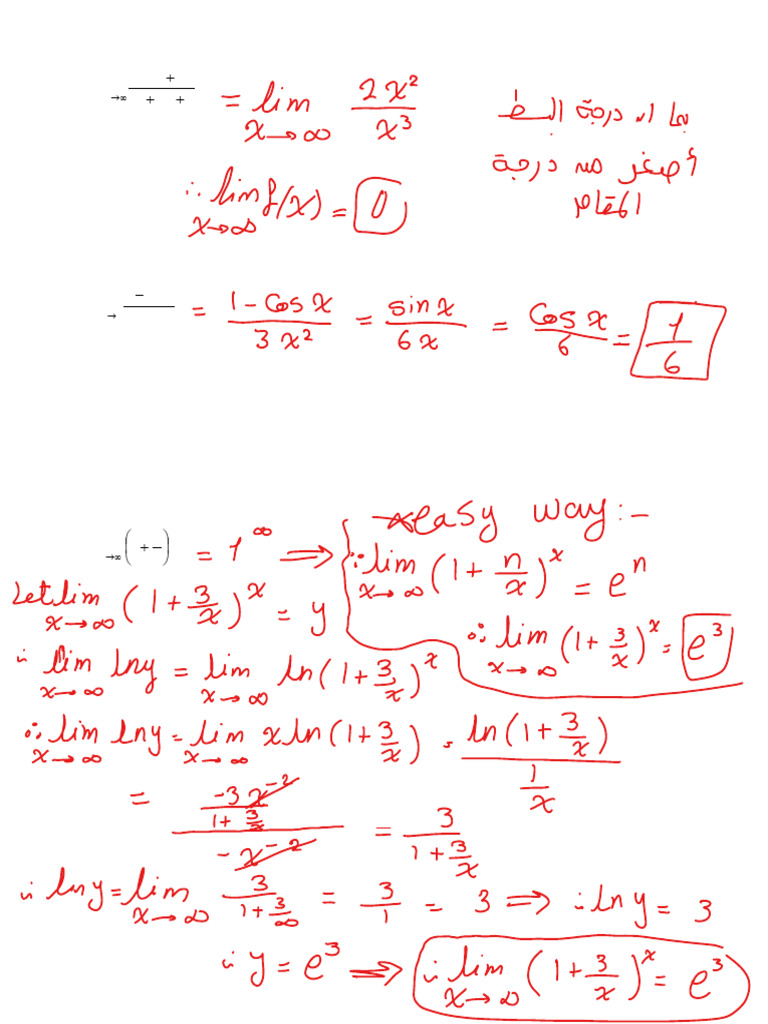 →∞ + / + + = lim x→∞ 2x² / x³
بما ان درجة البسط
أصغر من درجة
المقام
∴ lim x→∞ f(x) = 0
→ − = 1 - Cos x / 3x² = sin x / 6x = Cos x / 6 = 1/6
easy way:-
→∞ ( + − ) = 1^∞ ⇒
∵ lim x→∞ (1 + n/x)^x = e^n
Let lim x→∞ (1 + 3/x)^x = y
∴ lim x→∞ (1 + 3/x)^x = e³
∴ lim x→∞ ln y = lim x→∞ ln(1 + 3/x)^x
∴ lim x→∞ ln y = lim x→∞ x ln(1 + 3/x) = ln(1 + 3/x) / (1/x)
= (-3x⁻² / (1 + 3/x)) / (-x⁻²) = 3 / (1 + 3/x)
∴ ln y = lim x→∞ 3 / (1 + 3/∞) = 3/1 = 3 ⇒ ∴ ln y = 3
∴ y = e³ ⇒ ∴ lim x→∞ (1 + 3/x)^x = e³